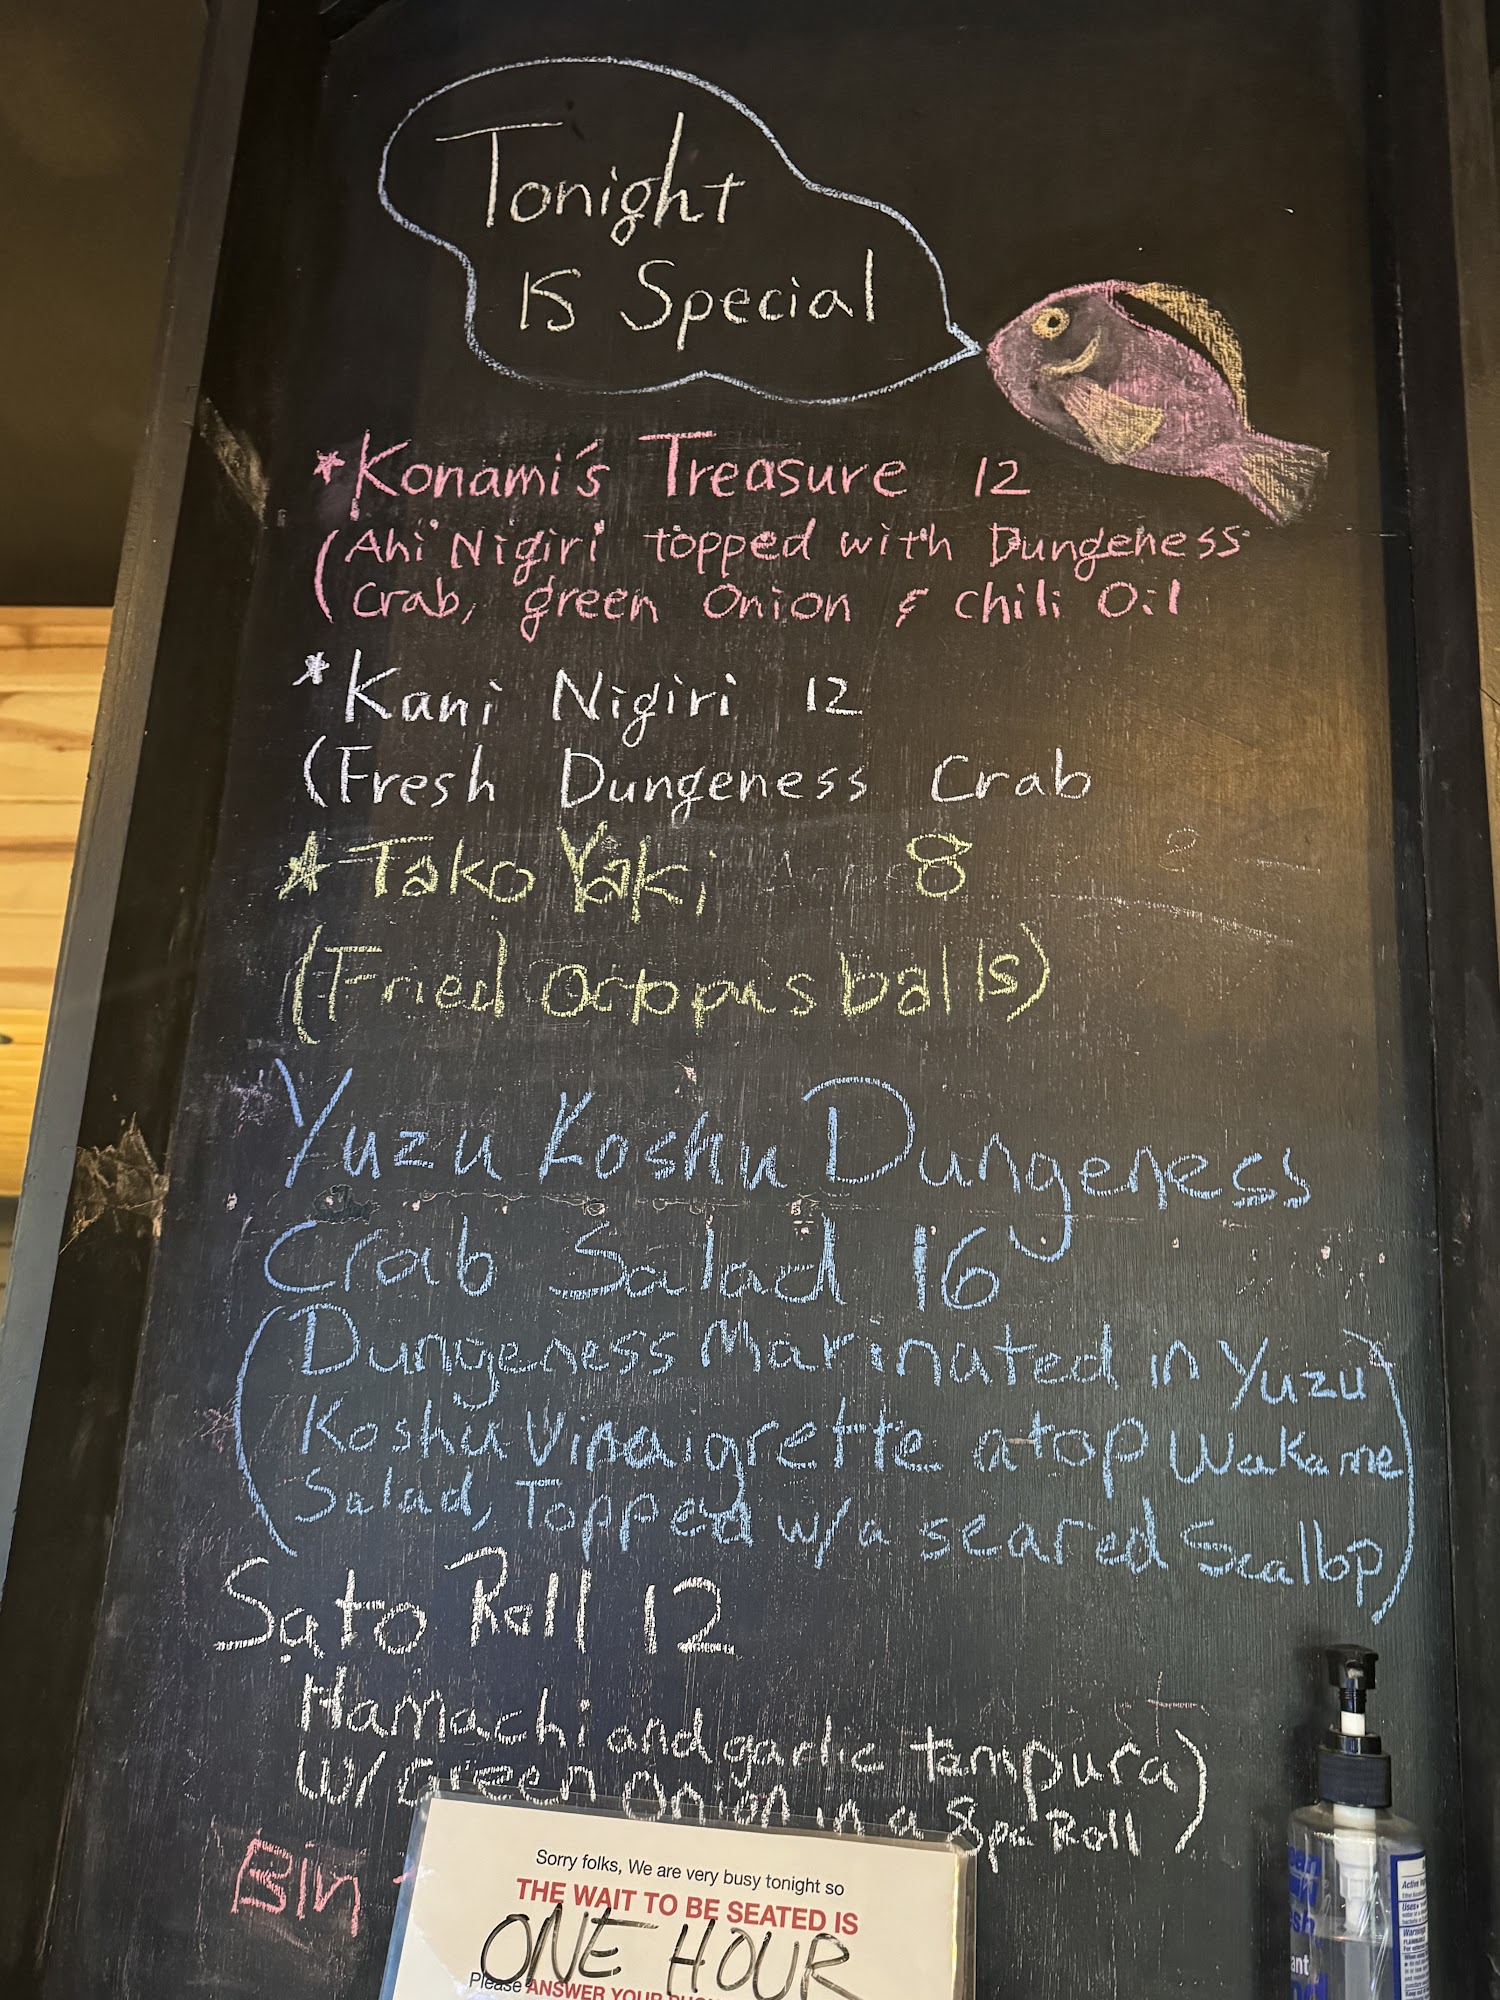 Tonight
is Special
*Konami's Treasure 12
(Ahi Nigiri topped with Dungeness
Crab, green Onion & chili Oil
*Kani Nigiri 12
(Fresh Dungeness Crab
*Tako Yaki 8
(Fried octopus balls)
Yuzu Koshu Dungeness
Crab Salad 16
(Dungeness Marinated in Yuzu
Koshu Vinaigrette atop Wakame
Salad, Topped w/a seared Scallop)
Sato Roll 12
Hamachi and garlic tempura)
w/ Green Onion in a Roll
Bin
Sorry folks, We are very busy tonight so
THE WAIT TO BE SEATED IS
ONE HOUR
Please ANSWER YOUR
Active
Uses
Warnings